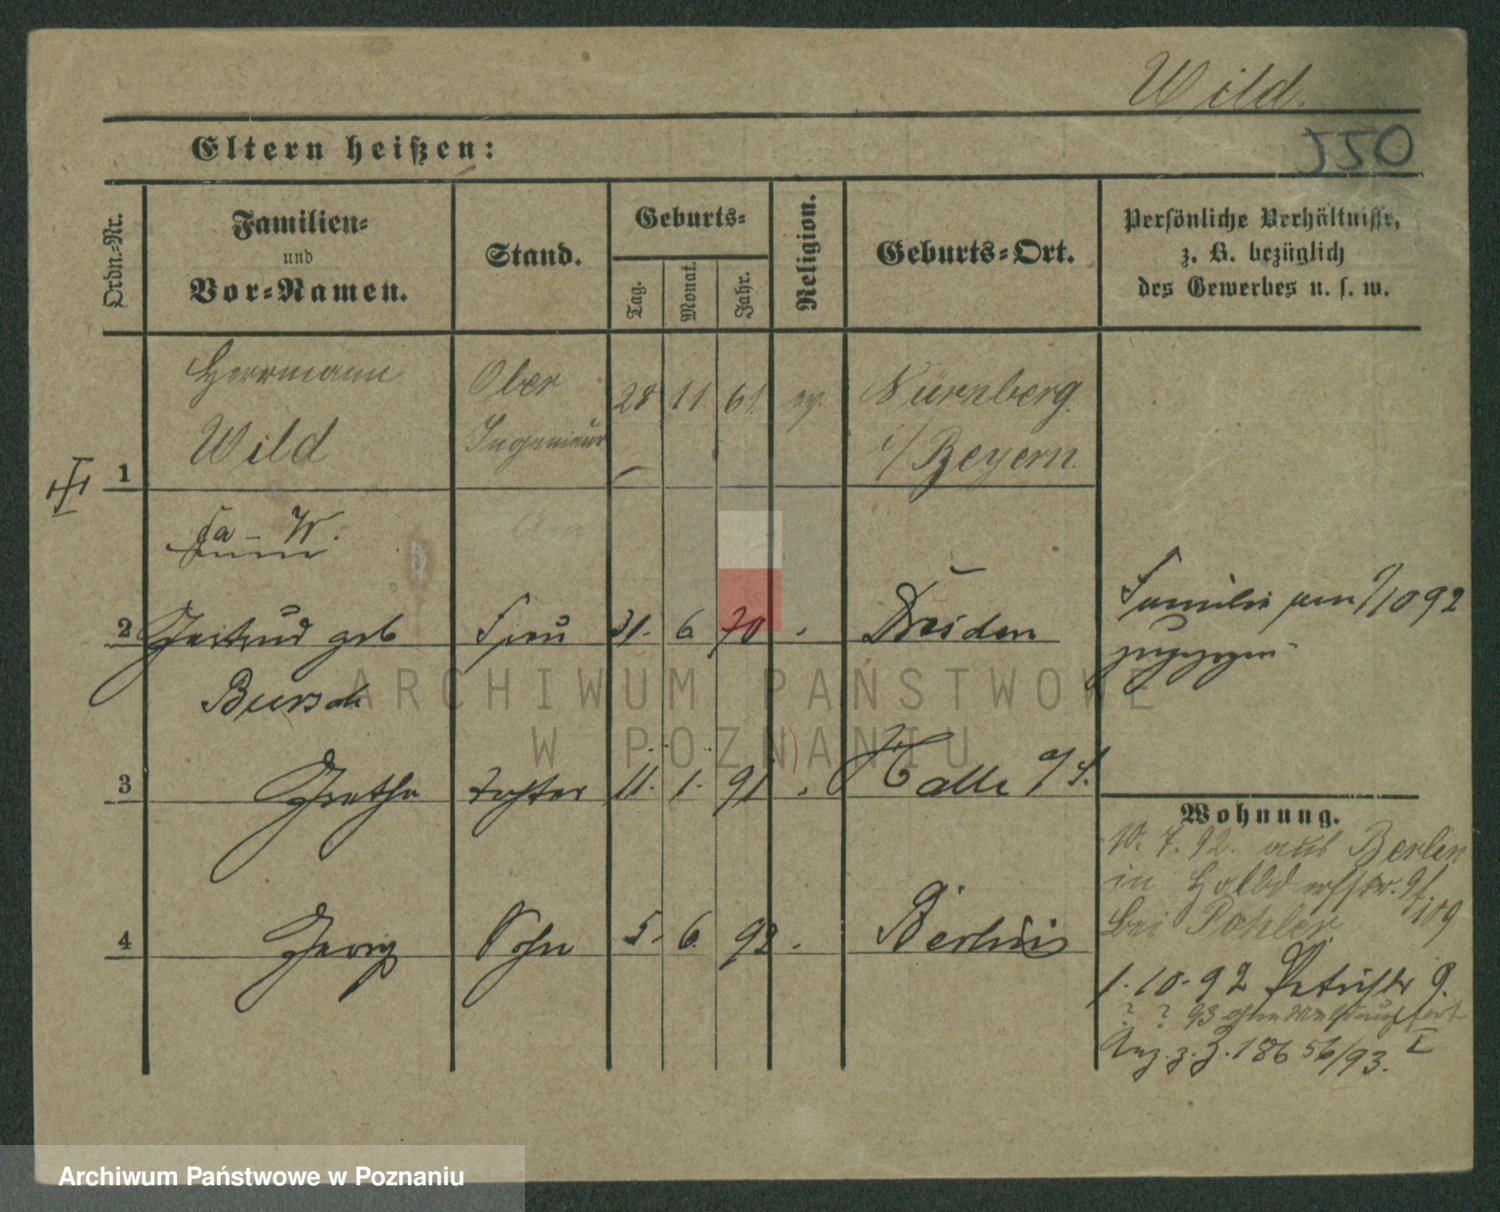 Wild.
550
Eltern heißen:
Ordn.-Nr.
Familien-
und
Vor-Namen.
Stand.
Geburts-
Tag.
Monat.
Jahr.
Religion.
Geburts-Ort.
Persönliche Verhältnisse,
z. B. bezüglich
des Gewerbes u. s. w.
1
Herrmann
Wild
Ober
Ingenieur
28 11. 61. ev.
Nürnberg
i/Beyern.
2
Gertrud geb
Bursch
Frau
31. 6. 70
Dresden
Familie am 1/10 92
zugezogen
3
Grethe
Tochter
11. 1. 91
Halle a/S.
4
Georg
Sohn
5. 6. 92
Berlin
Wohnung.
10. 7. 92. aus Berlin
in Halbdorfstr.
bei Pohler
1. 10. 92 Petristr 9.
? ? 93 ohne Meldung fort
Anz. z. Z. 18656/93.
ARCHIWUM PAŃSTWOWE
W POZNANIU
Archiwum Państwowe w Poznaniu